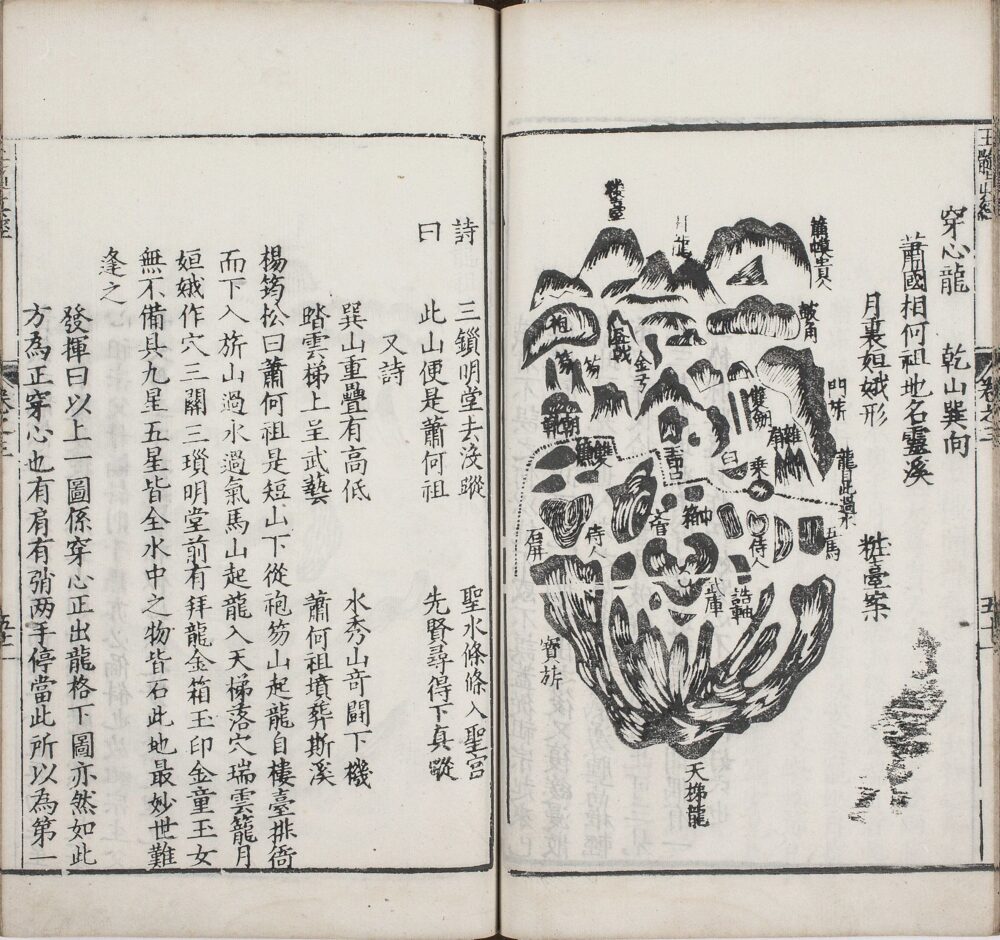 穿心龍 乾山巽向
蕭國相何祖地名靈溪
月裏姮娥形
粧臺案
樓臺
祖
笏
笏
金子
鼓角
雙劍
龍自此過水
乗
臼
侍人
侍人
五馬
石屏
武庫
誥軸
寶旂
天梯龍
詩曰
三鎖明堂去沒蹤 聖水條條入聖宮
此山便是蕭何祖 先賢尋得下真蹤
又詩
巽山重疊有高低 水秀山竒闘下機
踏雲梯上呈武藝 蕭何祖墳葬斯溪
楊筠松曰蕭何祖是短山下從袍笏山起龍自樓臺排衙
而下入旂山過水過氣馬山起龍入天梯落穴瑞雲籠月
姮娥作穴三關三瑣明堂前有拜龍金箱玉印金童玉女
無不備具九星五星皆全水中之物皆石此地最妙世難
逢之
發揮曰以上一圖係穿心正出龍格下圖亦然如此
方為正穿心也有肩有弰两手停當此所以為第一